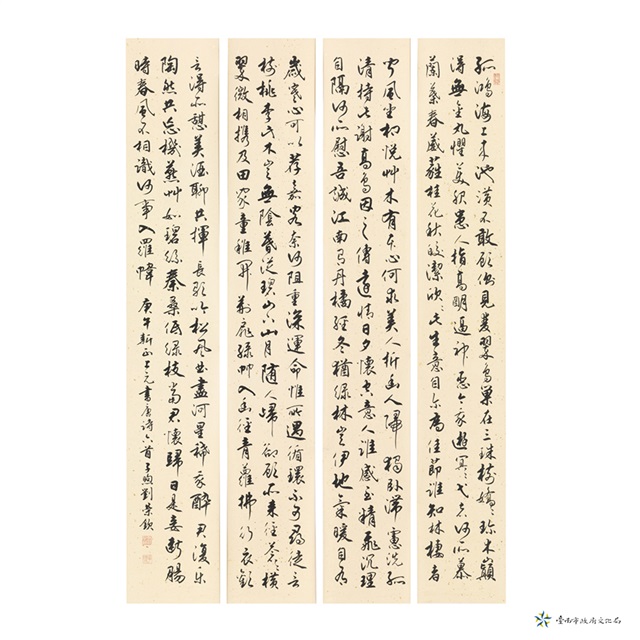 孤鴻海上來池潢不敢顧側見雙翠鳥巢在三珠樹矯矯珍木巔
得無金丸懼美服患人指高明逼神惡今我遊冥冥弋者何所慕
蘭葉春葳蕤桂花秋皎潔欣欣此生意自爾為佳節誰知林棲者
聞風坐相悅艸木有本心何求美人折幽人歸獨臥滯慮洗孤
清持此謝高鳥因之傳遠情日夕懷空意人誰感至精飛沉理
自隔何所慰吾誠江南有丹橘經冬猶綠林豈伊地氣暖自有
歲寒心可以荐嘉客奈何阻重深運命惟所遇循環不可尋徒言
樹桃李此木豈無陰暮從碧山下山月隨人歸卻顧所來徑蒼蒼橫
翠微相攜及田家童稚開荊扉綠竹入幽徑青蘿拂行衣歡
言得所憩美酒聊共揮長歌吟松風曲盡河星稀我醉君復樂
陶然共忘機燕艸如碧絲秦桑低綠枝當君懷歸日是妾斷腸
時春風不相識何事入羅幃 庚午新正上元書唐詩六首子煦劉榮欽
臺南市政府文化局